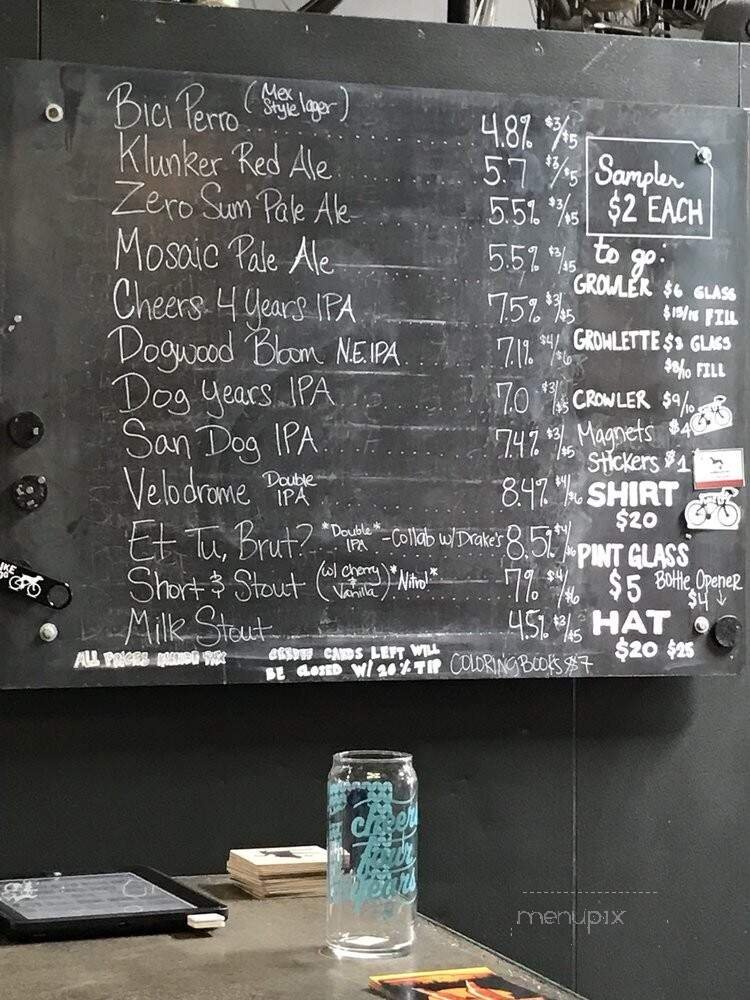 Bici Perro (Mex Style lager) 4.8% $3/$5
Klunker Red Ale 5.7 $3/$5
Zero Sum Pale Ale 5.5% $3/$5
Mosaic Pale Ale 5.5% $3/$5
Cheers 4 Years IPA 7.5% $3/$5
Dogwood Bloom N.E.IPA 7.1% $4/$6
Dog Years IPA 7.0 $3/$5
San Dog IPA 7.4% $3/$5
Velodrome Double IPA 8.4% $4/$6
Et Tu, Brut? *Double IPA* - Collab w/ Drake's 8.5% $4/$6
Short & Stout (w/ Cherry & Vanilla) *Nitro!* 7% $4/$6
Milk Stout 4.5% $3/$5
ALL PRICES INCLUDE TAX
CREDIT CARDS LEFT WILL
BE CLOSED W/ 20% TIP
COLORING BOOKS $7
Sampler
$2 EACH
to go:
GROWLER $6 GLASS
$15/18 FILL
GROWLETTE $3 GLASS
$8/10 FILL
CROWLER $9/10
Magnets $4
Stickers $1
SHIRT
$20
PINT GLASS
$5
Bottle Opener
$4
HAT
$20 $25
cheers
four
years
menupix